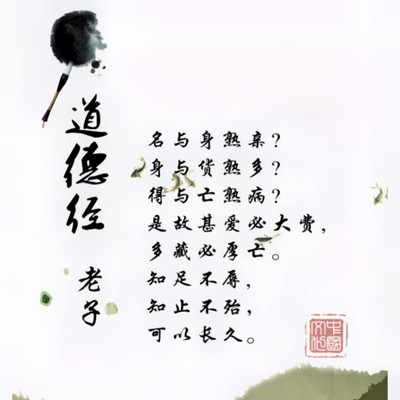 道德经
老子
名与身熟亲?
身与货熟多?
得与亡熟病?
是故甚爱必大费,
多藏必厚亡。
知足不辱,
知止不殆,
可以长久。
中國
文化